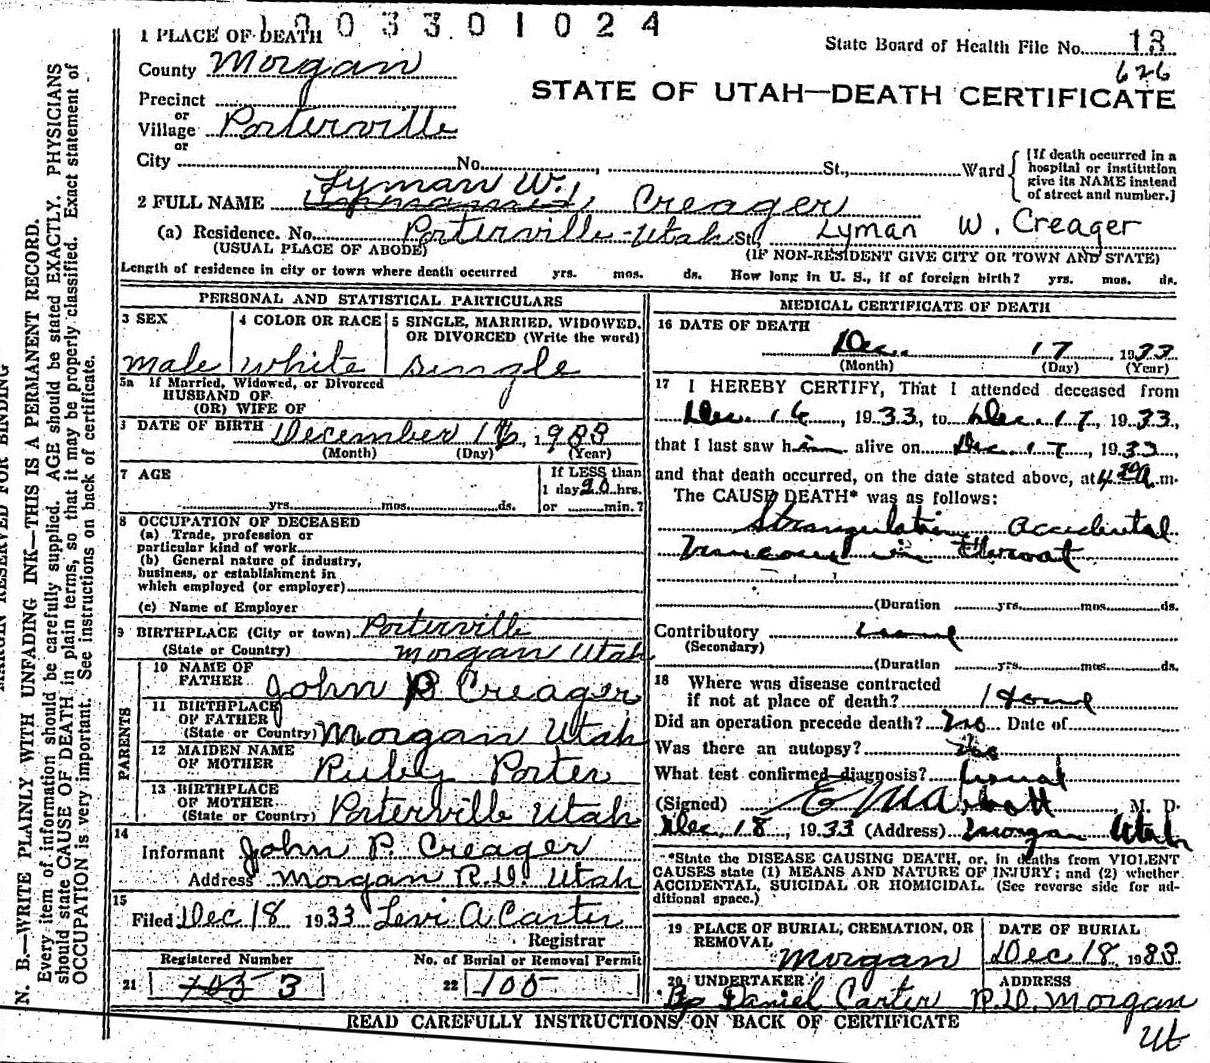 1003301024
1 PLACE OF DEATH
State Board of Health File No. 13
626
County Morgan
STATE OF UTAH—DEATH CERTIFICATE
Precinct
or
Village Porterville
or
City No. St., Ward
[If death occurred in a
hospital or institution
give its NAME instead
of street and number.]
Lyman W.
2 FULL NAME Creager
(a) Residence. No. Porterville-Utah St. Lyman W. Creager
(USUAL PLACE OF ABODE) (IF NON-RESIDENT GIVE CITY OR TOWN AND STATE)
Length of residence in city or town where death occurred yrs. mos. ds. How long in U. S., if of foreign birth? yrs. mos. ds.
PERSONAL AND STATISTICAL PARTICULARS
3 SEX 4 COLOR OR RACE 5 SINGLE, MARRIED, WIDOWED,
OR DIVORCED (Write the word)
male white single
5a If Married, Widowed, or Divorced
HUSBAND OF
(OR) WIFE OF
DATE OF BIRTH December 16, 1933
(Month) (Day) (Year)
7 AGE If LESS than
1 day 20 hrs.
yrs. mos. ds. or min.?
8 OCCUPATION OF DECEASED
(a) Trade, profession or
particular kind of work
(b) General nature of industry,
business, or establishment in
which employed (or employer)
(c) Name of Employer
9 BIRTHPLACE (City or town) Porterville
(State or Country) Morgan Utah
PARENTS
10 NAME OF
FATHER John P Creager
11 BIRTHPLACE
OF FATHER
(State or Country) Morgan Utah
12 MAIDEN NAME
OF MOTHER Ruby Porter
13 BIRTHPLACE
OF MOTHER
(State or Country) Porterville Utah
14
Informant John P. Creager
Address Morgan R.D. Utah
15
Filed Dec 18 1933 Levi A Carter
Registrar
Registered Number No. of Burial or Removal Permit
21 703 3 22 105
MEDICAL CERTIFICATE OF DEATH
16 DATE OF DEATH
Dec. 17, 1933
(Month) (Day) (Year)
17 I HEREBY CERTIFY, That I attended deceased from
Dec. 16, 1933, to Dec. 17, 1933,
that I last saw him alive on Dec. 17, 1933,
and that death occurred, on the date stated above, at 4.30 a.m.
The CAUSE DEATH* was as follows:
Strangulation accidental
in throat
(Duration yrs. mos. ds.
Contributory none
(Secondary)
(Duration yrs. mos. ds.
18 Where was disease contracted
if not at place of death? Home
Did an operation precede death? no Date of
Was there an autopsy? no
What test confirmed diagnosis? usual
(Signed) M. D.
Dec. 18, 1933 (Address) Morgan Utah
*State the DISEASE CAUSING DEATH, or, in deaths from VIOLENT
CAUSES state (1) MEANS AND NATURE OF INJURY; and (2) whether
ACCIDENTAL, SUICIDAL OR HOMICIDAL. (See reverse side for ad-
ditional space.)
19 PLACE OF BURIAL, CREMATION, OR
REMOVAL Morgan
DATE OF BURIAL
Dec 18, 1933
20 UNDERTAKER ADDRESS
Bp Daniel Carter R.D. Morgan
Ut
READ CAREFULLY INSTRUCTIONS ON BACK OF CERTIFICATE
MARGIN RESERVED FOR BINDING
N. B.—WRITE PLAINLY WITH UNFADING INK—THIS IS A PERMANENT RECORD.
Every item of information should be carefully supplied. AGE should be stated EXACTLY. PHYSICIANS
should state CAUSE OF DEATH in plain terms, so that it may be properly classified. Exact statement of
OCCUPATION is very important. See instructions on back of certificate.